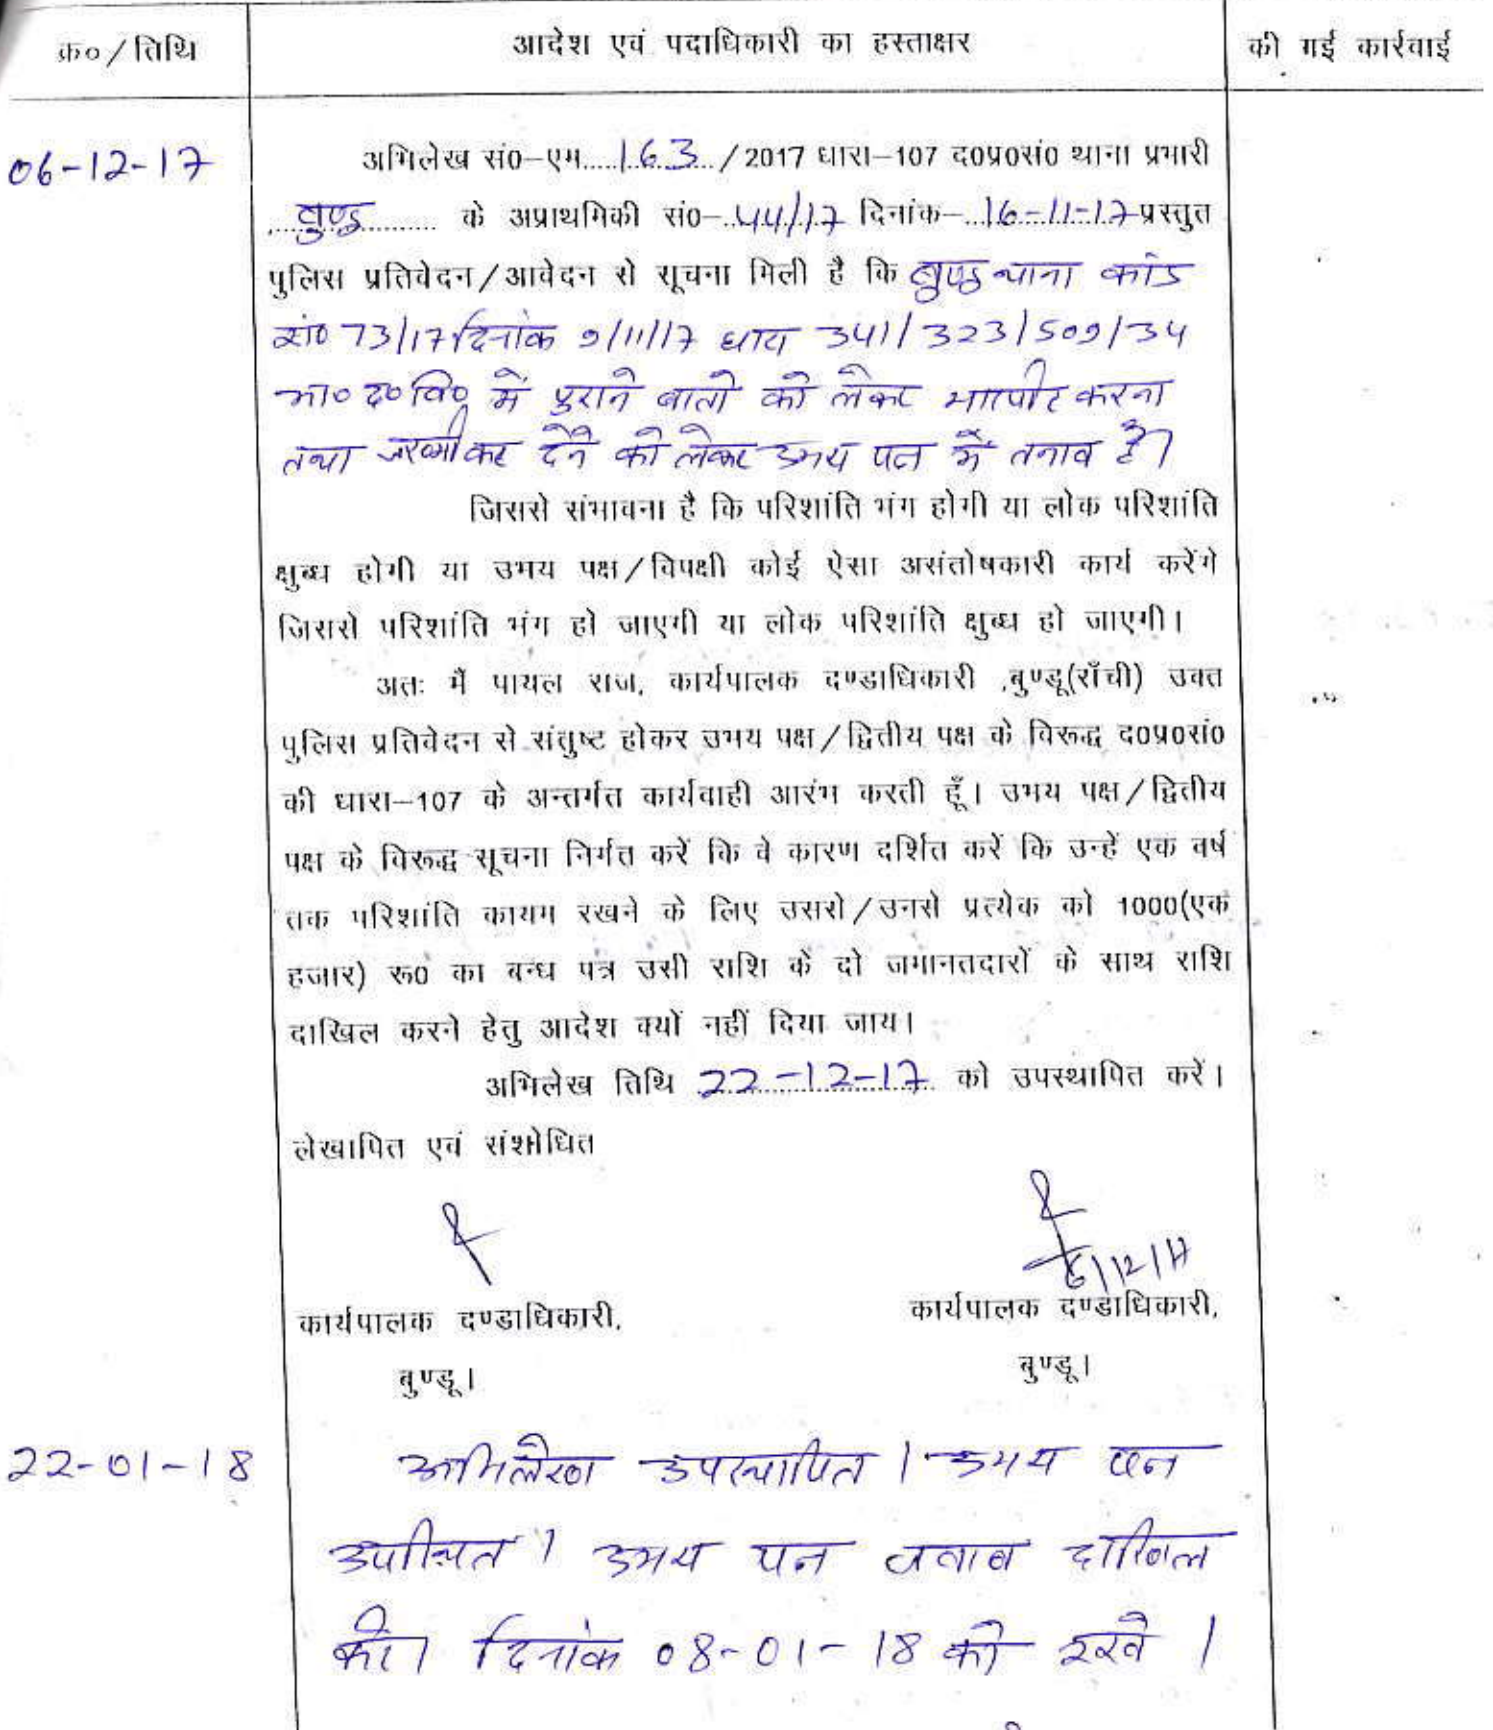 क्र०/तिथि आदेश एवं पदाधिकारी का हस्ताक्षर की गई कार्रवाई
06-12-17 अभिलेख सं0-एम.....163.../2017 धारा-107 द0प्र0सं0 थाना प्रभारी
बुण्डु के अप्राथमिकी सं0-44/17 दिनांक-16-11-17 प्रस्तुत
पुलिस प्रतिवेदन/आवेदन से सूचना मिली है कि बुण्डु थाना कांड
सं0 73/17 दिनांक 9/11/17 धारा 341/323/509/34
भा० द० वि० में पुराने बातों को लेकर मारपीट करना
तथा जख्मी कर देने को लेकर उभय पक्ष में तनाव है।
जिससे संभावना है कि परिशांति भंग होगी या लोक परिशांति
क्षुब्ध होगी या उभय पक्ष/विपक्षी कोई ऐसा असंतोषकारी कार्य करेंगे
जिससे परिशांति भंग हो जाएगी या लोक परिशांति क्षुब्ध हो जाएगी।
अतः मैं पायल राज, कार्यपालक दण्डाधिकारी ,बुण्डू(राँची) उक्त
पुलिस प्रतिवेदन से संतुष्ट होकर उभय पक्ष/द्वितीय पक्ष के विरूद्ध द0प्र0सं0
की धारा-107 के अन्तर्गत कार्यवाही आरंभ करती हूँ। उभय पक्ष/द्वितीय
पक्ष के विरूद्ध सूचना निर्गत करें कि वे कारण दर्शित करें कि उन्हें एक वर्ष
तक परिशांति कायम रखने के लिए उससे/उनसे प्रत्येक को 1000(एक
हजार) रू0 का बन्ध पत्र उसी राशि के दो जमानतदारों के साथ राशि
दाखिल करने हेतु आदेश क्यों नहीं दिया जाय।
अभिलेख तिथि 22-12-17 को उपस्थापित करें।
लेखापित एवं संशोधित
6/12/17
कार्यपालक दण्डाधिकारी, कार्यपालक दण्डाधिकारी,
बुण्डू। बुण्डू।
22-01-18 अभिलेख उपस्थापित। उभय पक्ष
उपस्थित। उभय पक्ष जवाब दाखिल
करें। दिनांक 08-01-18 को रखें।